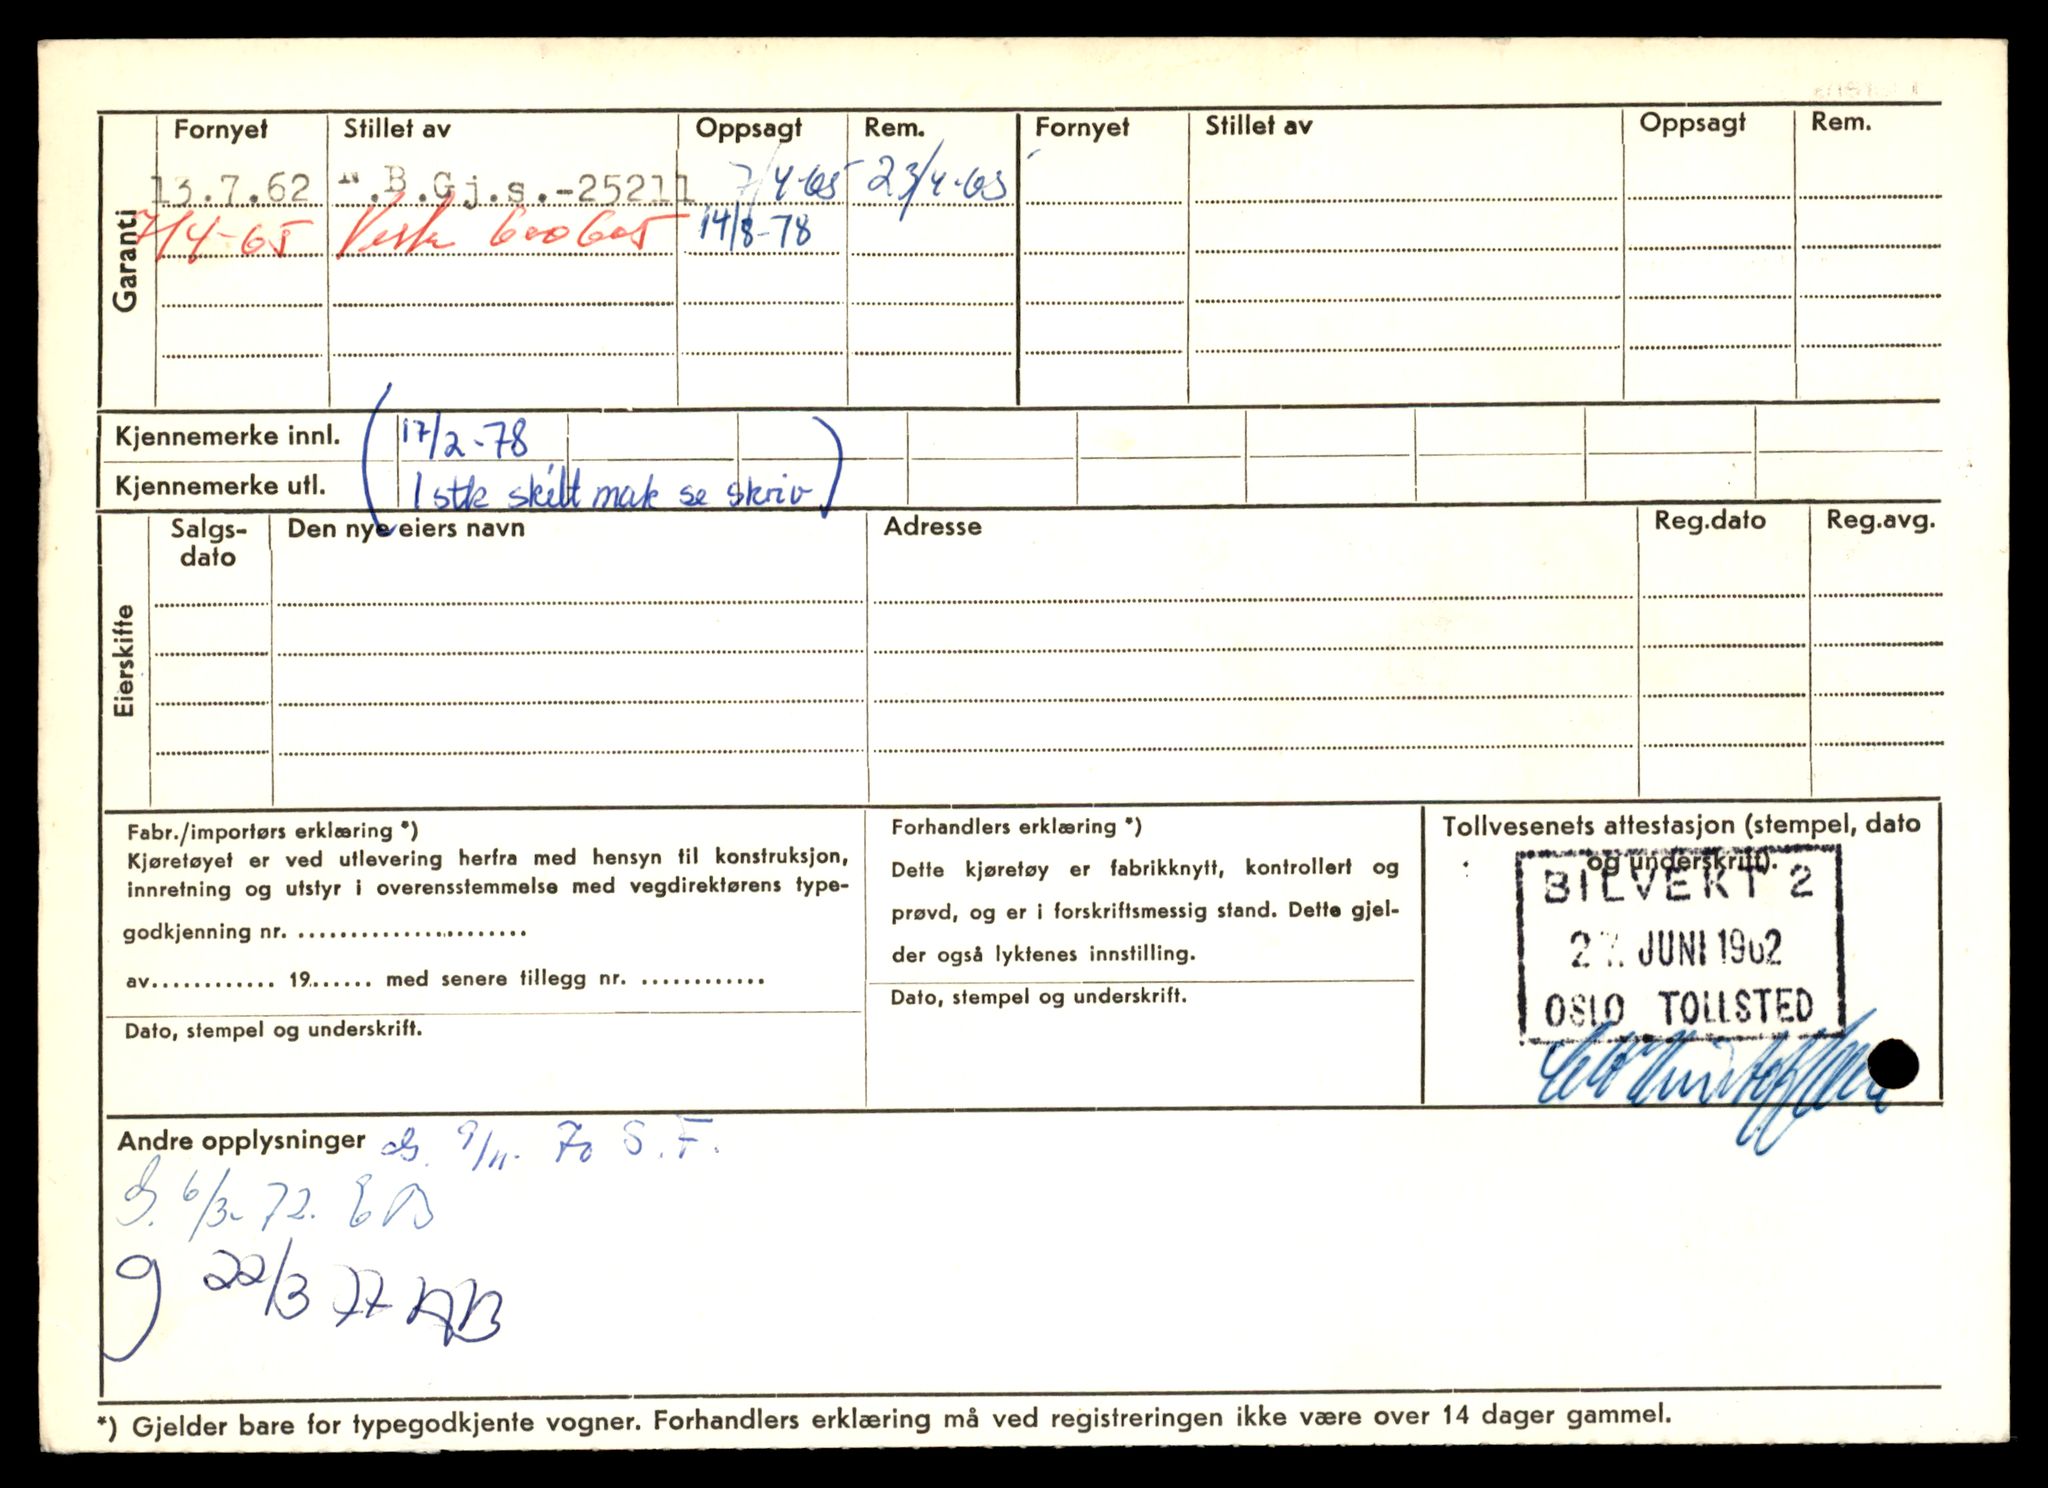 Garanti
Fornyet Stillet av Oppsagt Rem. Fornyet Stillet av Oppsagt Rem.
13.7.62 N.B.Gj.s.-25211 7/4-65 23/4-65
7/4-65 600605 14/8-78
Kjennemerke innl. 17/2-78
Kjennemerke utl. 1 stk skilt mak se skriv
Eierskifte
Salgs-dato Den nye eiers navn Adresse Reg.dato Reg.avg.
Fabr./importørs erklæring *)
Kjøretøyet er ved utlevering herfra med hensyn til konstruksjon,
innretning og utstyr i overensstemmelse med vegdirektørens type-
godkjenning nr. ......................
av............ 19...... med senere tillegg nr. ............
Dato, stempel og underskrift.
Forhandlers erklæring *)
Dette kjøretøy er fabrikknytt, kontrollert og
prøvd, og er i forskriftsmessig stand. Dette gjel-
der også lyktenes innstilling.
Dato, stempel og underskrift.
Tollvesenets attestasjon (stempel, dato
og underskrift).
BILVEKT 2
JUNI 1962
OSLO TOLLSTED
Andre opplysninger 9/11. 70 S.F.
6/3-72.
g 22/3 77 AB
*) Gjelder bare for typegodkjente vogner. Forhandlers erklæring må ved registreringen ikke være over 14 dager gammel.